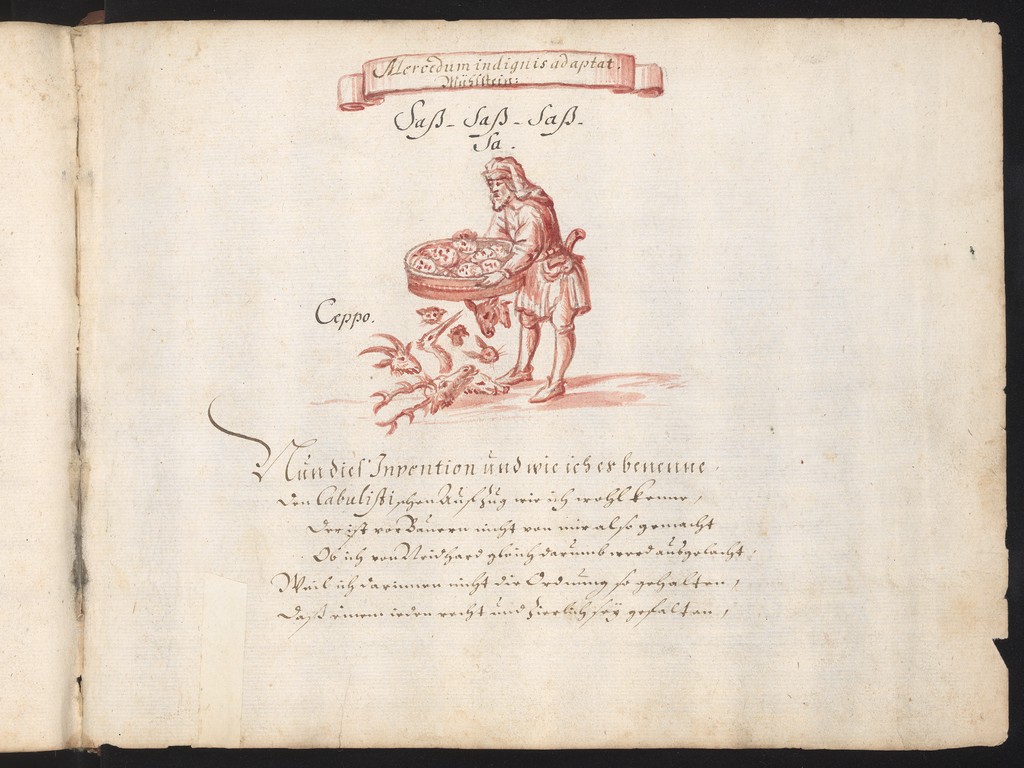 Mercedum indignis adaptat.
Mühlstein:
Saß- Saß- Saß-
Sa.
Ceppo.
Nun dies Invention und wie ich es benenne,
den Cabulistischen Aufzug wie ich wohl kenne,
der ist vor Bauern nicht von mir also gemacht
Ob ich von Neidhard gleich darumb werd ausgelacht,
Weil ich darinnen nicht die Ordnung so gehalten,
daß einem ieden recht und zierlich sey gefalten,